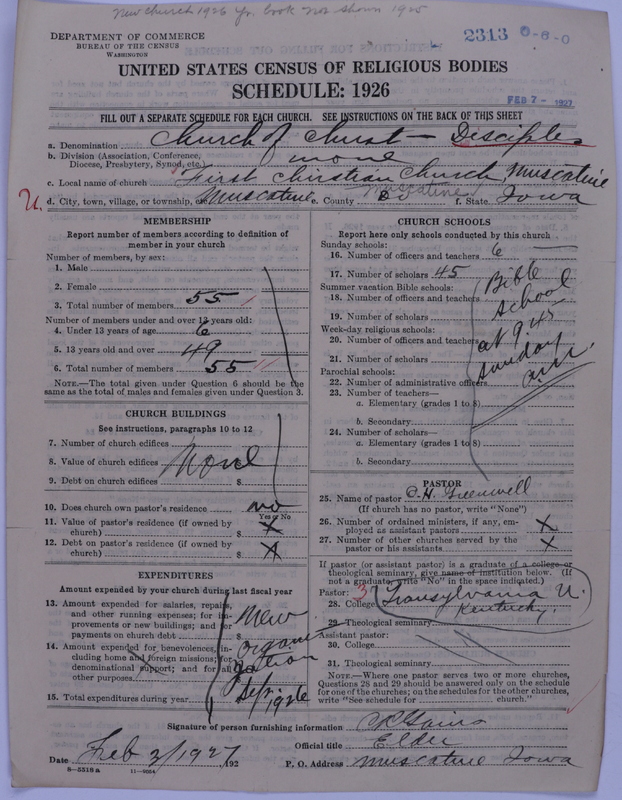 New church 1926 Yr. book not shown 1925
DEPARTMENT OF COMMERCE
BUREAU OF THE CENSUS
WASHINGTON
2313 0-6-0
UNITED STATES CENSUS OF RELIGIOUS BODIES
SCHEDULE: 1926
FEB 7 - 1927
FILL OUT A SEPARATE SCHEDULE FOR EACH CHURCH. SEE INSTRUCTIONS ON THE BACK OF THIS SHEET
a. Denomination Church of Christ — Disciples
b. Division (Association, Conference, Diocese, Presbytery, Synod, etc.) none
c. Local name of church First Christian Church, Muscatine
U. d. City, town, village, or township, etc. Muscatine e. County Muscatine f. State Iowa
MEMBERSHIP
Report number of members according to definition of member in your church
Number of members, by sex:
1. Male
2. Female
3. Total number of members 55
Number of members under and over 13 years old:
4. Under 13 years of age 6
5. 13 years old and over 49
6. Total number of members 55
NOTE.—The total given under Question 6 should be the same as the total of males and females given under Question 3.
CHURCH BUILDINGS
See instructions, paragraphs 10 to 12
7. Number of church edifices
8. Value of church edifices $ None
9. Debt on church edifices $
10. Does church own pastor's residence no
Yes or No
11. Value of pastor's residence (if owned by church) $ X
12. Debt on pastor's residence (if owned by church) $ X
EXPENDITURES
Amount expended by your church during last fiscal year
13. Amount expended for salaries, repairs, and other running expenses; for improvements or new buildings; and for payments on church debt $
14. Amount expended for benevolences, including home and foreign missions; for denominational support; and for all other purposes $
15. Total expenditures during year $
New organization Sep. 1926
CHURCH SCHOOLS
Report here only schools conducted by this church
Sunday schools:
16. Number of officers and teachers 6
17. Number of scholars 45
Summer vacation Bible schools:
18. Number of officers and teachers
19. Number of scholars
Week-day religious schools:
20. Number of officers and teachers
21. Number of scholars
Parochial schools:
22. Number of administrative officers
23. Number of teachers—
a. Elementary (grades 1 to 8)
b. Secondary
24. Number of scholars—
a. Elementary (grades 1 to 8)
b. Secondary
Bible school at 9.45 Sunday a.m.
PASTOR
25. Name of pastor O. H. Greenwell
(If church has no pastor, write "None")
26. Number of ordained ministers, if any, employed as assistant pastors X
27. Number of other churches served by the pastor or his assistants X
If pastor (or assistant pastor) is a graduate of a college or theological seminary, give name of institution below. (If not a graduate, write "No" in the space indicated.)
Pastor: 3
28. College Transylvania U. Kentucky.
29. Theological seminary
Assistant pastor:
30. College
31. Theological seminary
NOTE.—Where one pastor serves two or more churches, Questions 28 and 29 should be answered only on the schedule for one of the churches; on the schedules for the other churches, write "See schedule for church."
Signature of person furnishing information
Official title Elder
Date Feb 3/1927 192
P. O. Address Muscatine Iowa
8—5518 a 11—9054